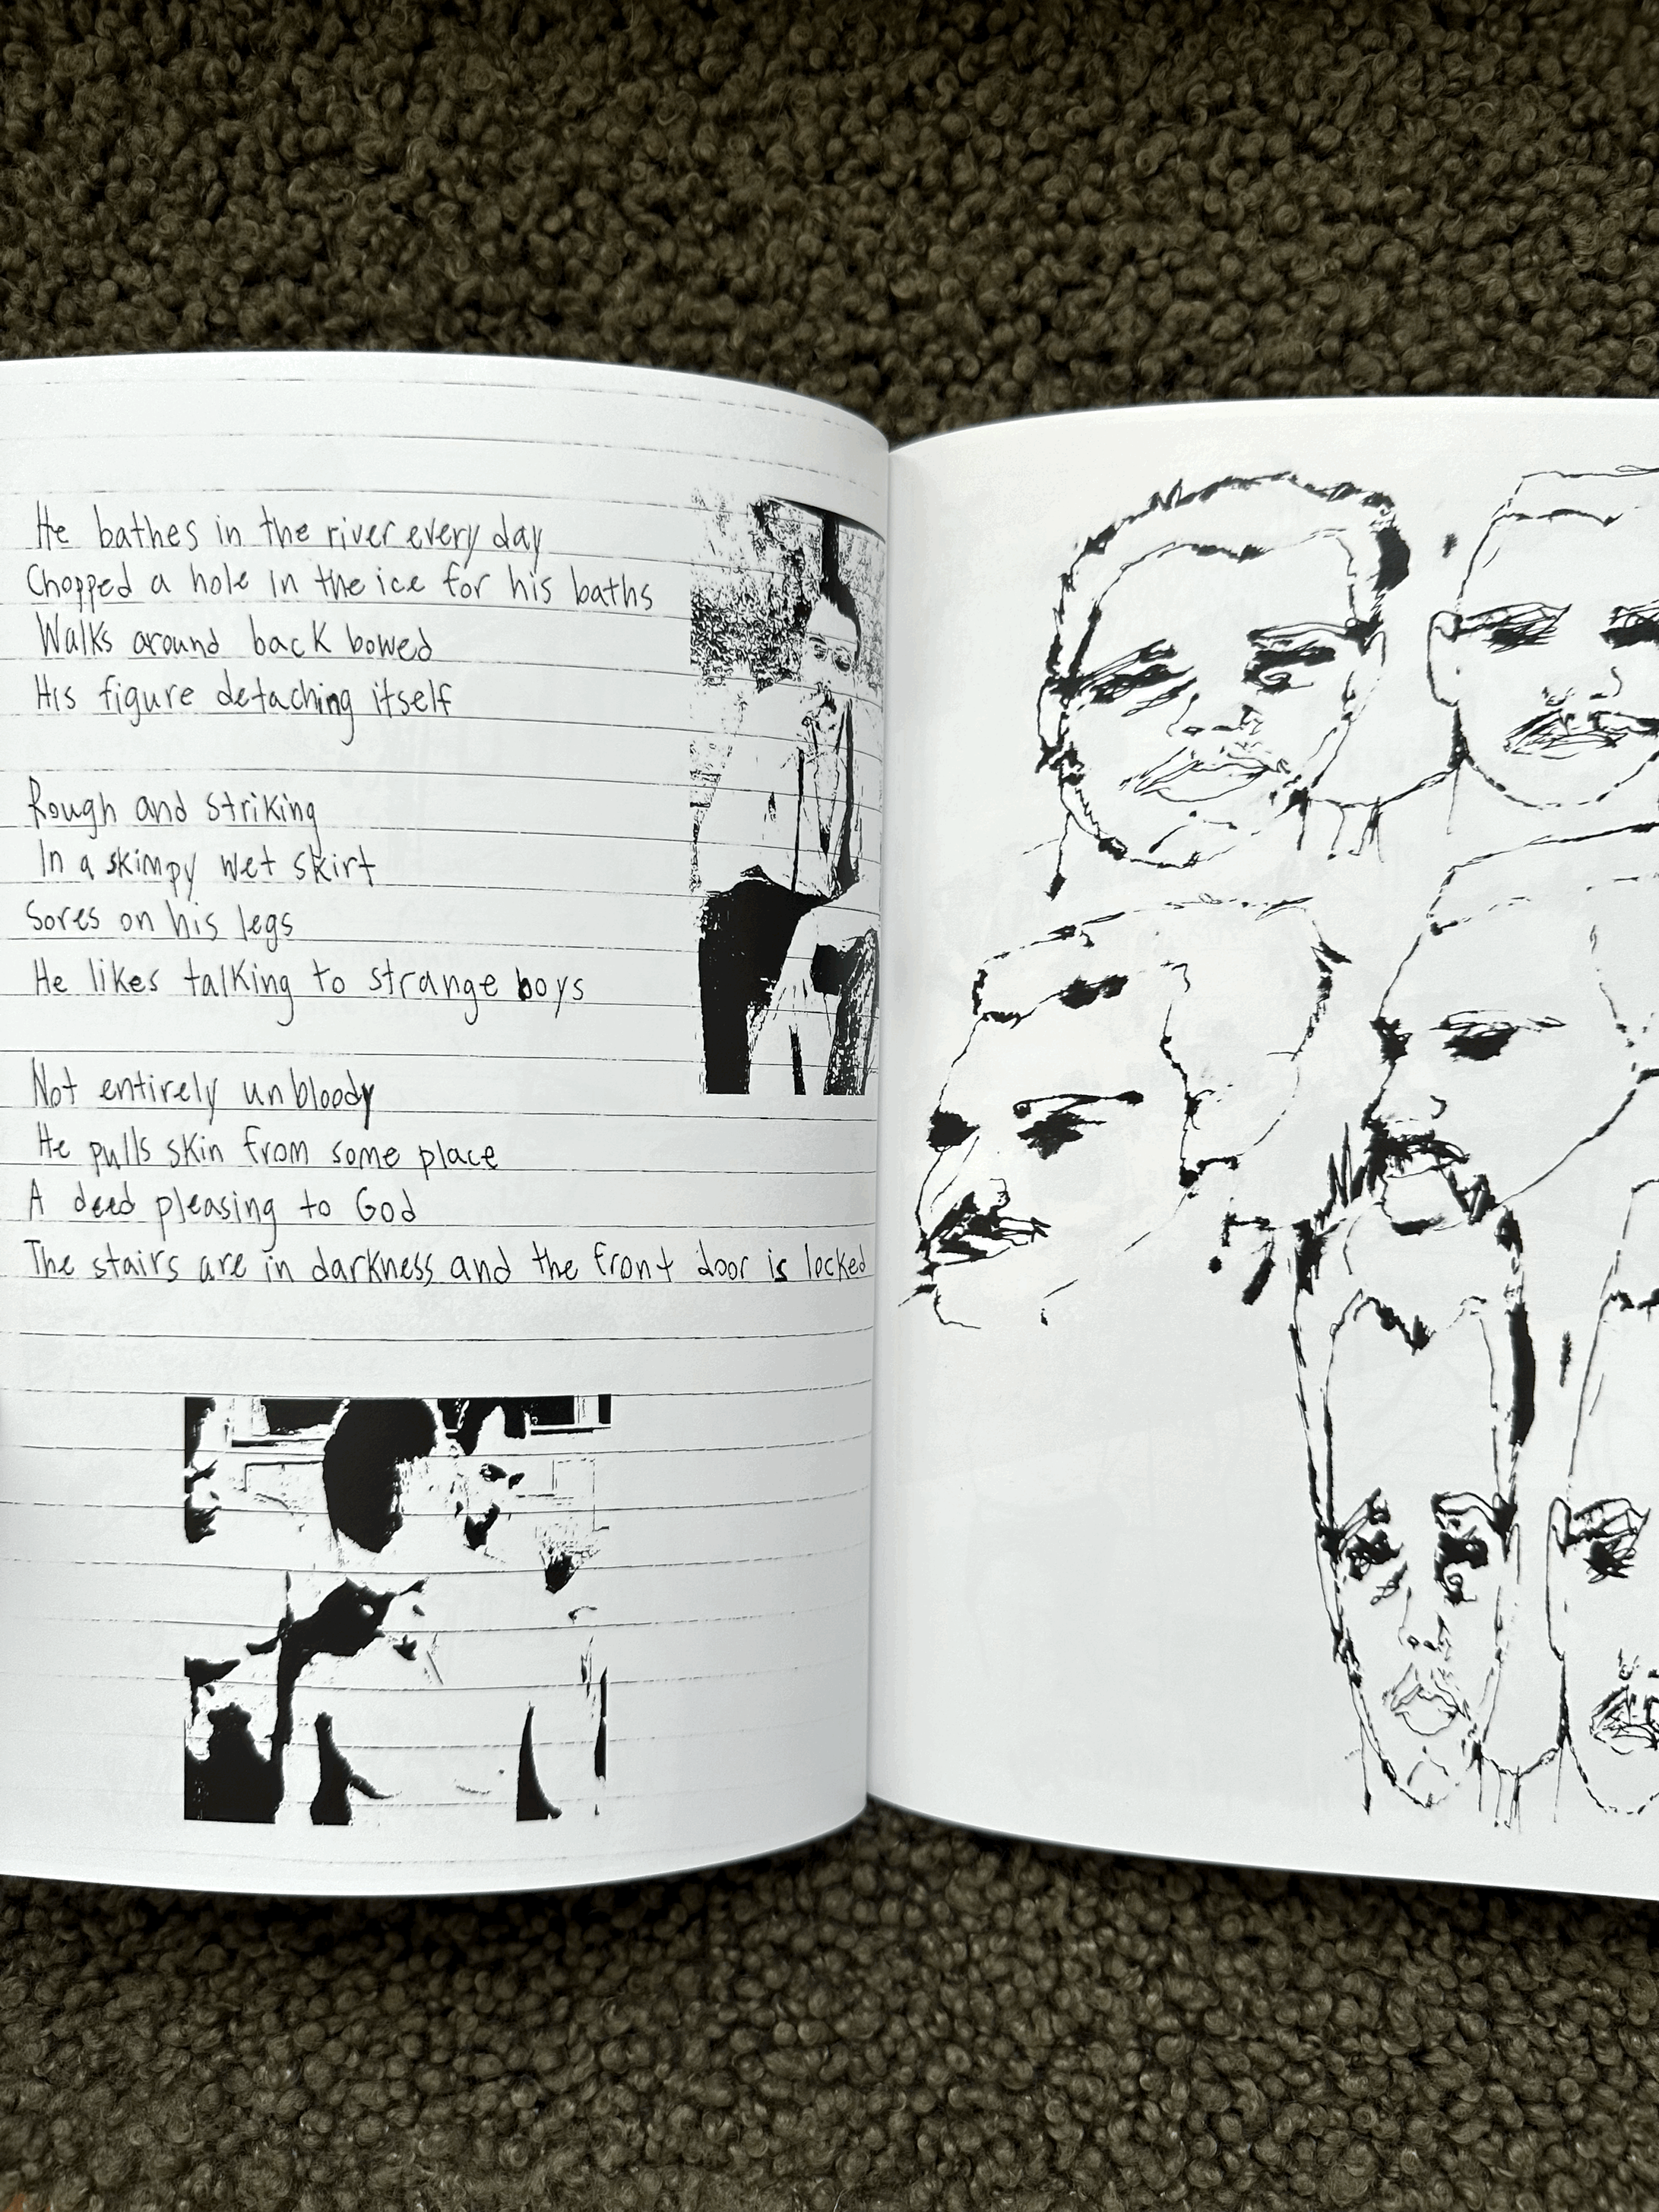 He bathes in the river every day
Chopped a hole in the ice for his baths
Walks around back bowed
His figure detaching itself
Rough and striking
In a skimpy wet skirt
Sores on his legs
He likes talking to strange boys
Not entirely unbloody
He pulls skin from some place
A deed pleasing to God
The stairs are in darkness and the front door is locked